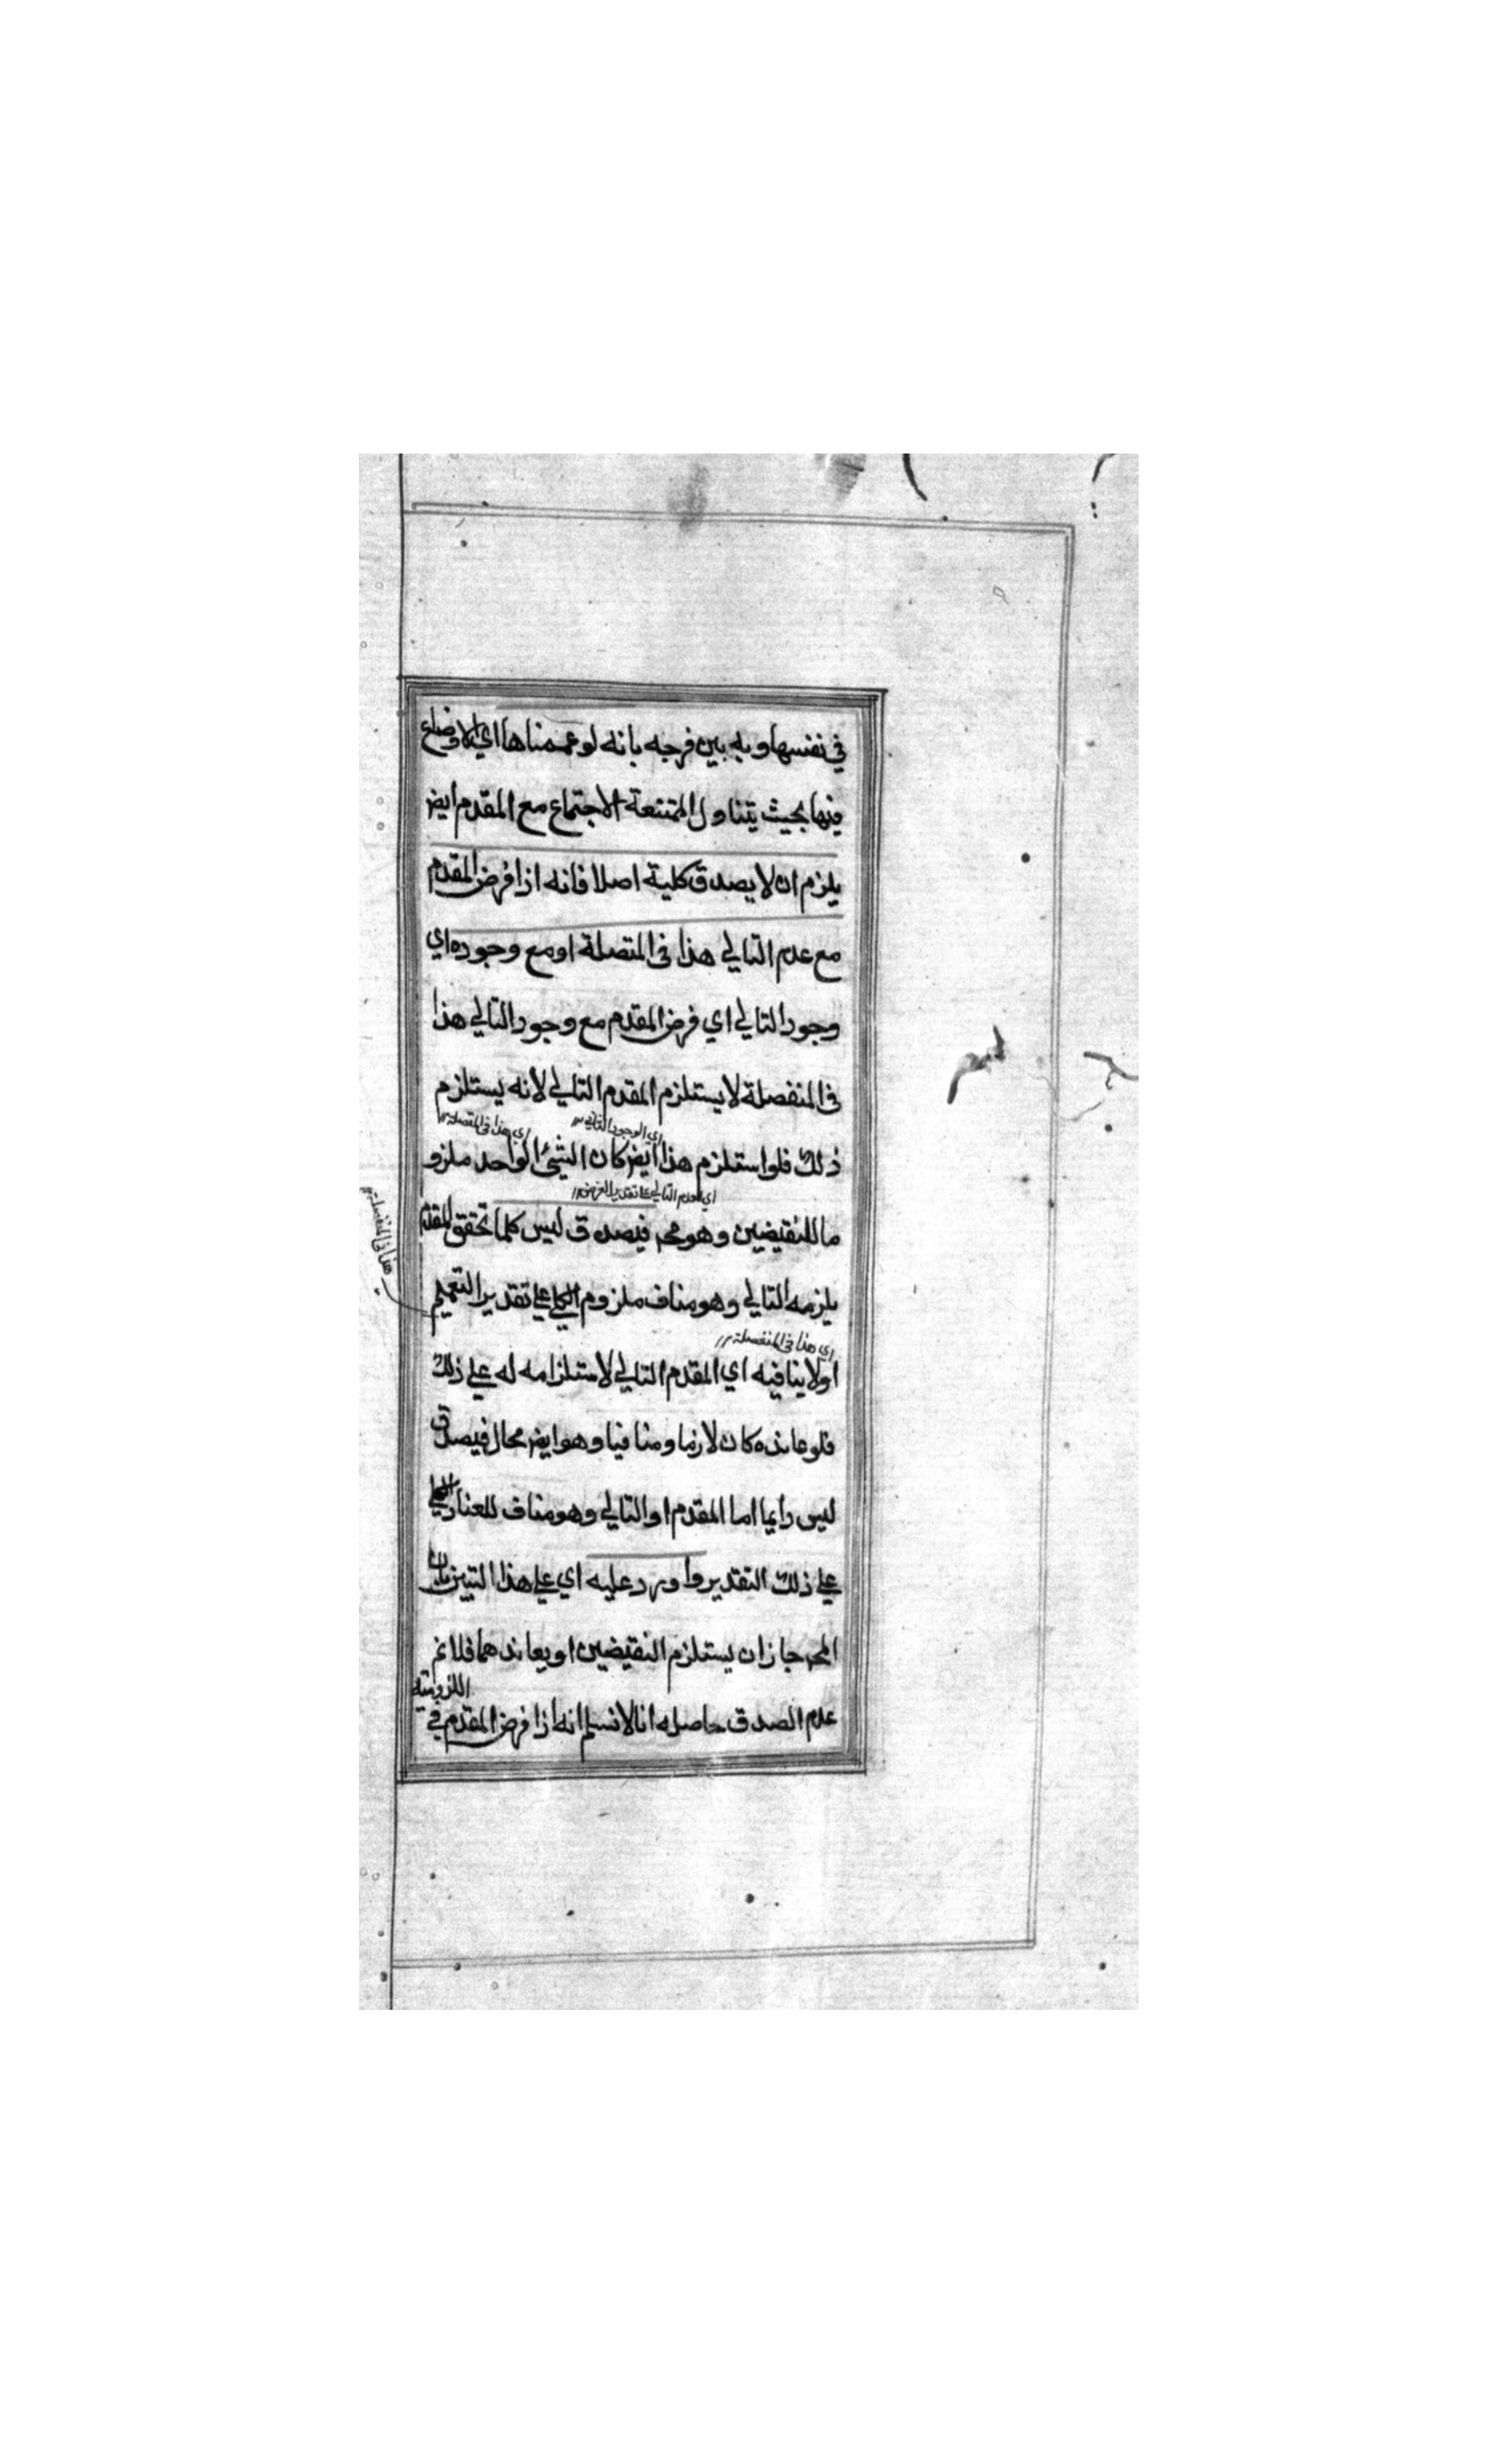 في نفسها وبه بين فرجه بانه لو عممناها اي الاوضاع
فيها بحيث يتناول الممتنعة الاجتماع مع المقدم ايض
يلزم ان لا يصدق كلية اصلا فانه اذا فرض المقدم
مع عدم التالي هذا في المتصلة او مع وجوده اي
وجود التالي اي فرض المقدم مع وجود التالي هذا
في المنفصلة لا يستلزم المقدم التالي لانه يستلزم
اي الوجود التالي
اي هذا في المتصلة
ذلك فلو استلزم هذا ايض كان الشيئ الواحد ملزو
اي لعدم التالي على تقدير الفرض
ما للنقيضين وهو مح فيصدق ليس كلما تحقق المقدم
يلزمه التالي وهو مناف ملزوم الكلي على تقدير التعميم
هذا في المنفصلة
اي هذا في المنفصلة
او لا ينافيه اي المقدم التالي لاستلزامه له على ذلك
فلو عانده كان لازما ومنافيا وهو ايض محال فيصدق
ليس دايما اما المقدم او التالي وهو مناف للعناد الكلي
على ذلك التقدير واورد عليه اي على هذا التبيين بان
المح جاز ان يستلزم النقيضين او يعاندهما فلا نم
عدم الصدق حاصله انا لا نسلم انه اذا فرض المقدم في
اللزومية